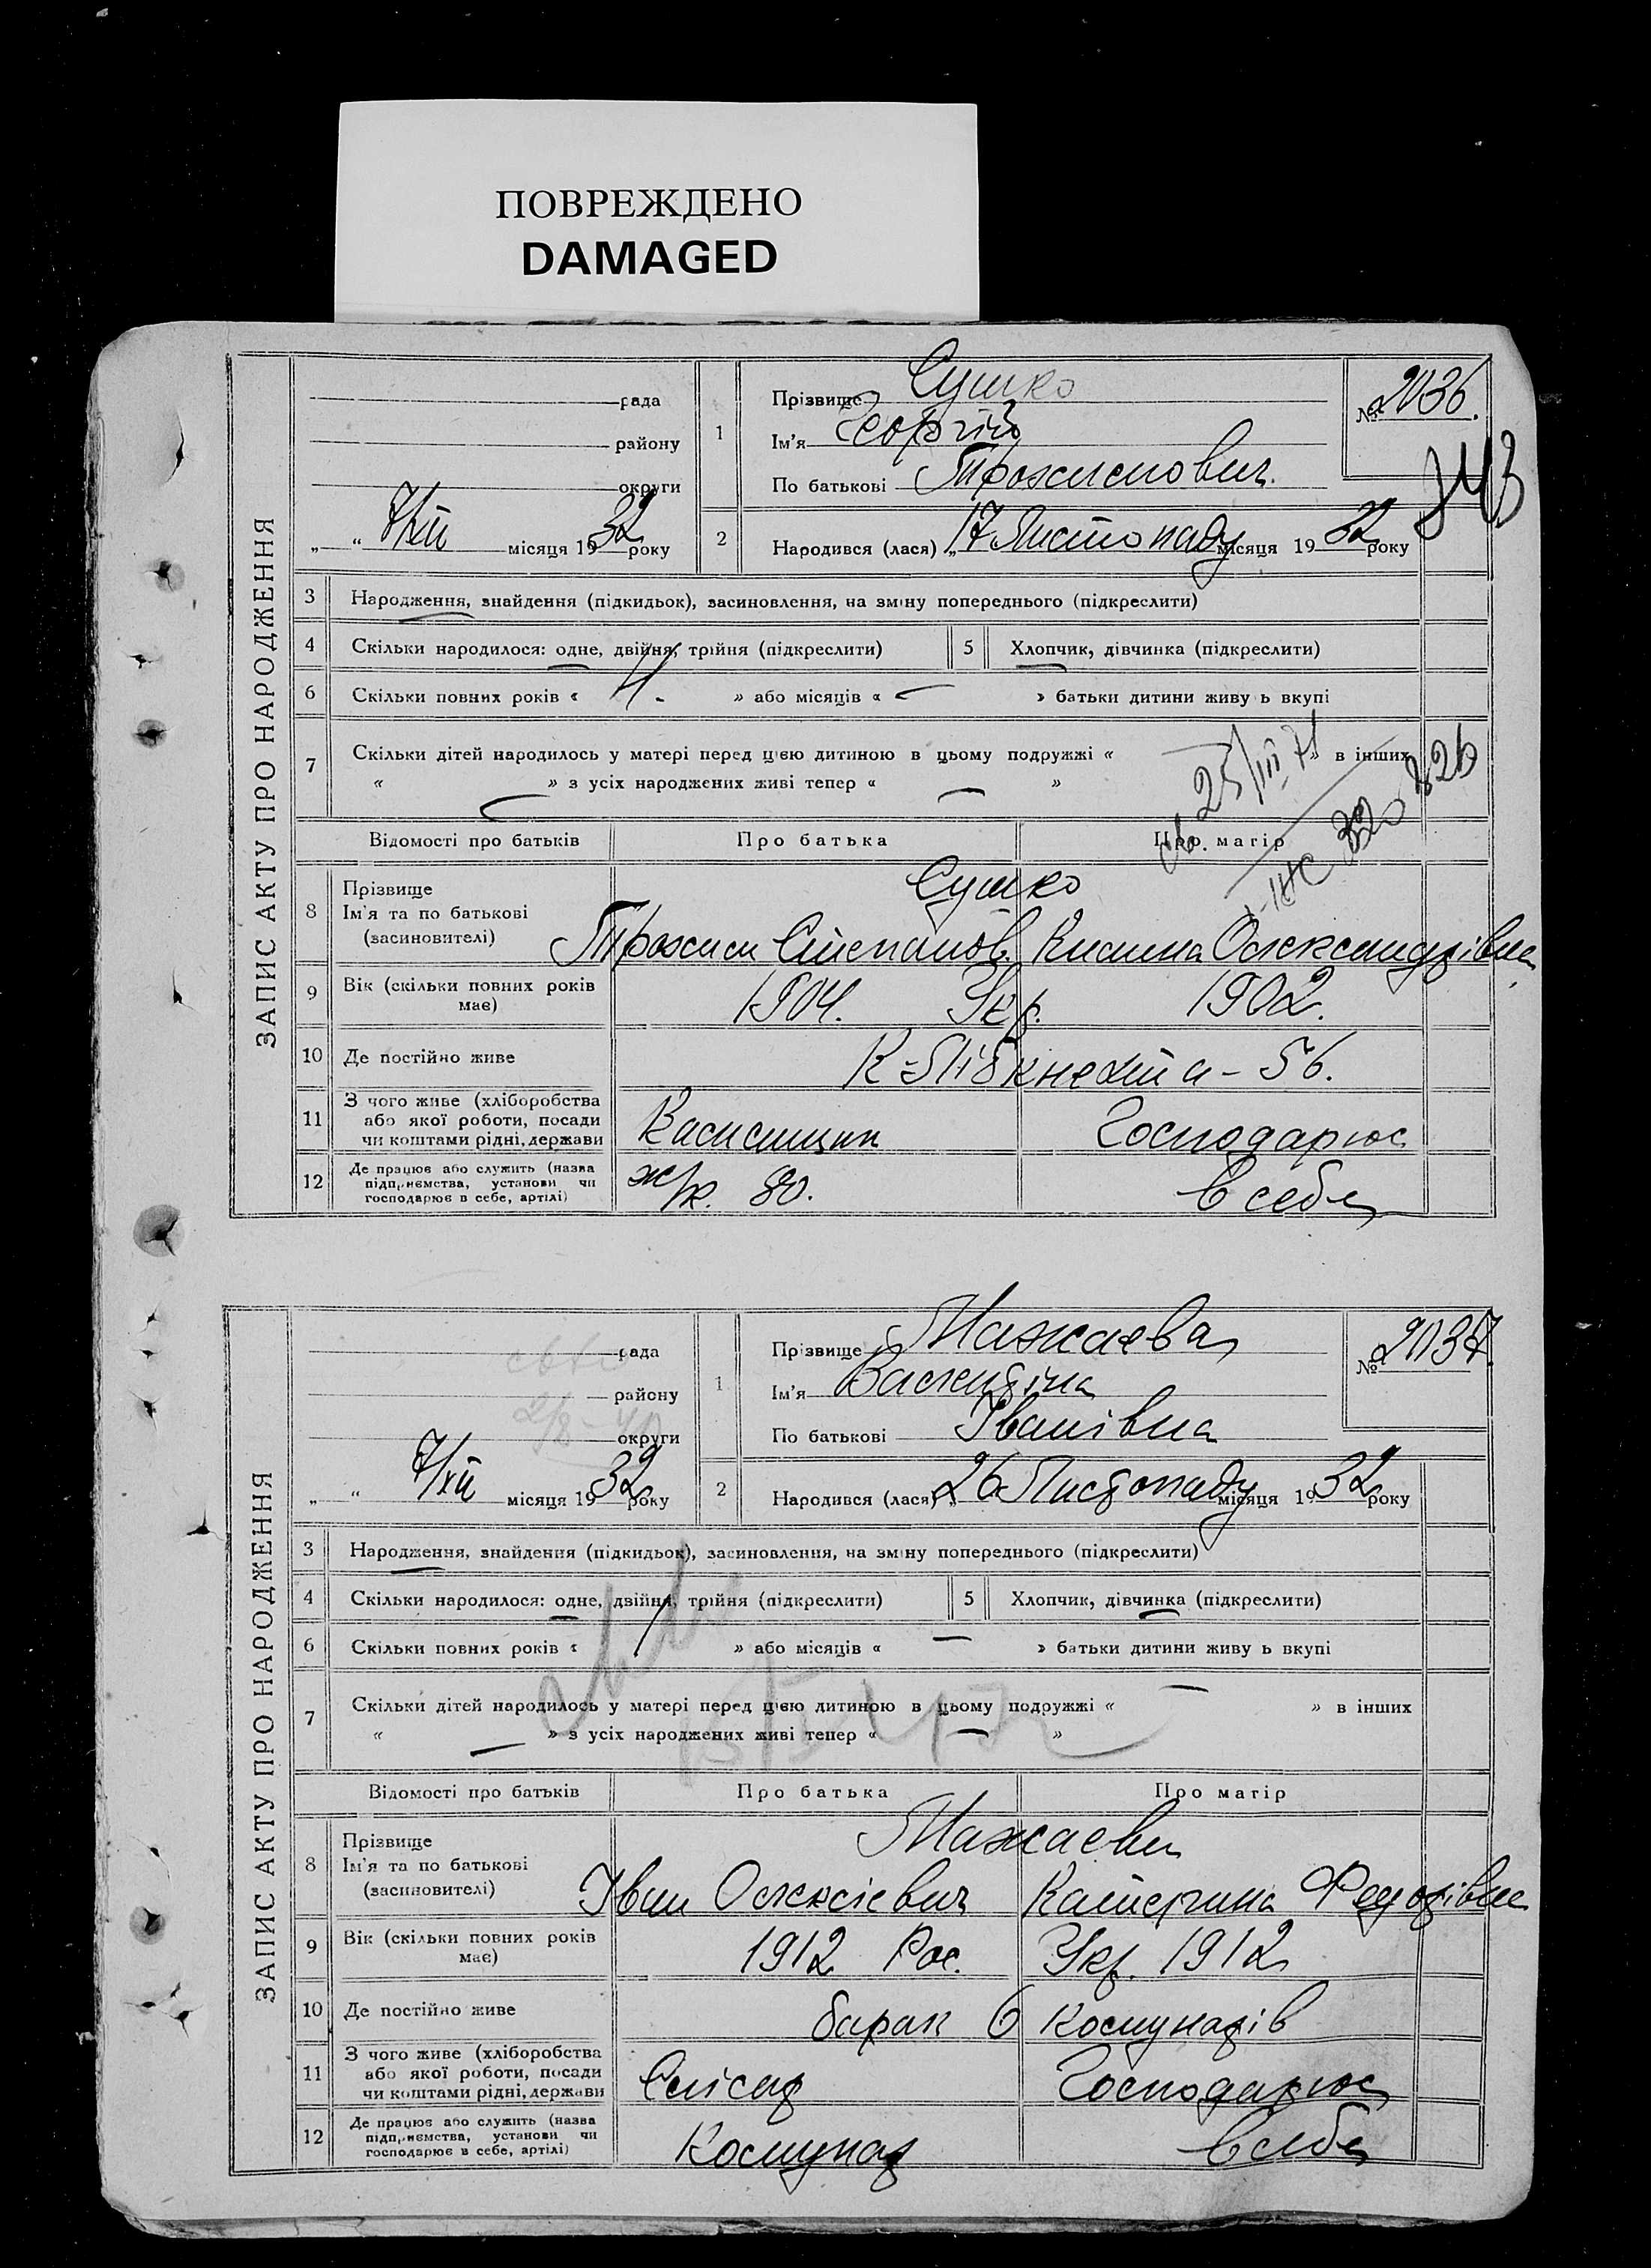 ПОВРЕЖДЕНО
DAMAGED
ЗАПИС АКТУ ПРО НАРОДЖЕННЯ
рада
району
округи
„ “ 7/XII місяця 1932 року
1
Прізвище Сушко
Ім'я Георгій
По батькові Трохимович.
№ 2036.
2
Народився (лася) „17 Листопаду місяця 1932 року
3 Народження, знайдення (підкидьок), засиновлення, на зміну попереднього (підкреслити)
4 Скільки народилося: одне, двійня, трійня (підкреслити) 5 Хлопчик, дівчинка (підкреслити)
6 Скільки повних років « 4. » або місяців « — » батьки дитини живу ь вкупі
7 Скільки дітей народилось у матері перед цією дитиною в цьому подружжі « — » в інших
« — » з усіх народжених живі тепер « — »
25/III 71
Відомості про батьків Про батька Про матір
8 Прізвище
Ім'я та по батькові
(засиновителі)
Сушко
Трохим Степанов. Килина Олександрівна
9 Вік (скільки повних років має) 1904. Укр. 1902.
10 Де постійно живе К-Лібкнехта - 56.
11 З чого живе (хліборобства або якої роботи, посади чи коштами рідні, держави Господарює
12 Де працює або служить (назва підприємства, установи чи господарює в себе, артілі) 80. в себе
ЗАПИС АКТУ ПРО НАРОДЖЕННЯ
рада
району
округи
„ “ 7/XII місяця 1932 року
1
Прізвище Мажаева
Ім'я Валентіна
По батькові Іванівна
№ 2037.
2
Народився (лася) „26 Листопаду місяця 1932 року
3 Народження, знайдення (підкидьок), засиновлення, на зміну попереднього (підкреслити)
4 Скільки народилося: одне, двійня, трійня (підкреслити) 5 Хлопчик, дівчинка (підкреслити)
6 Скільки повних років « 1 » або місяців « — » батьки дитини живу ь вкупі
7 Скільки дітей народилось у матері перед цією дитиною в цьому подружжі « — » в інших
« — » з усіх народжених живі тепер « — »
Відомості про батьків Про батька Про матір
8 Прізвище
Ім'я та по батькові
(засиновителі)
Мажаеви
Іван Олексієвич Катерина Федорівна
9 Вік (скільки повних років має) 1912 Рос. Укр. 1912
10 Де постійно живе барак 6 Комунарів
11 З чого живе (хліборобства або якої роботи, посади чи коштами рідні, держави Слісар Господарює
12 Де працює або служить (назва підприємства, установи чи господарює в себе, артілі) Комунар в себе